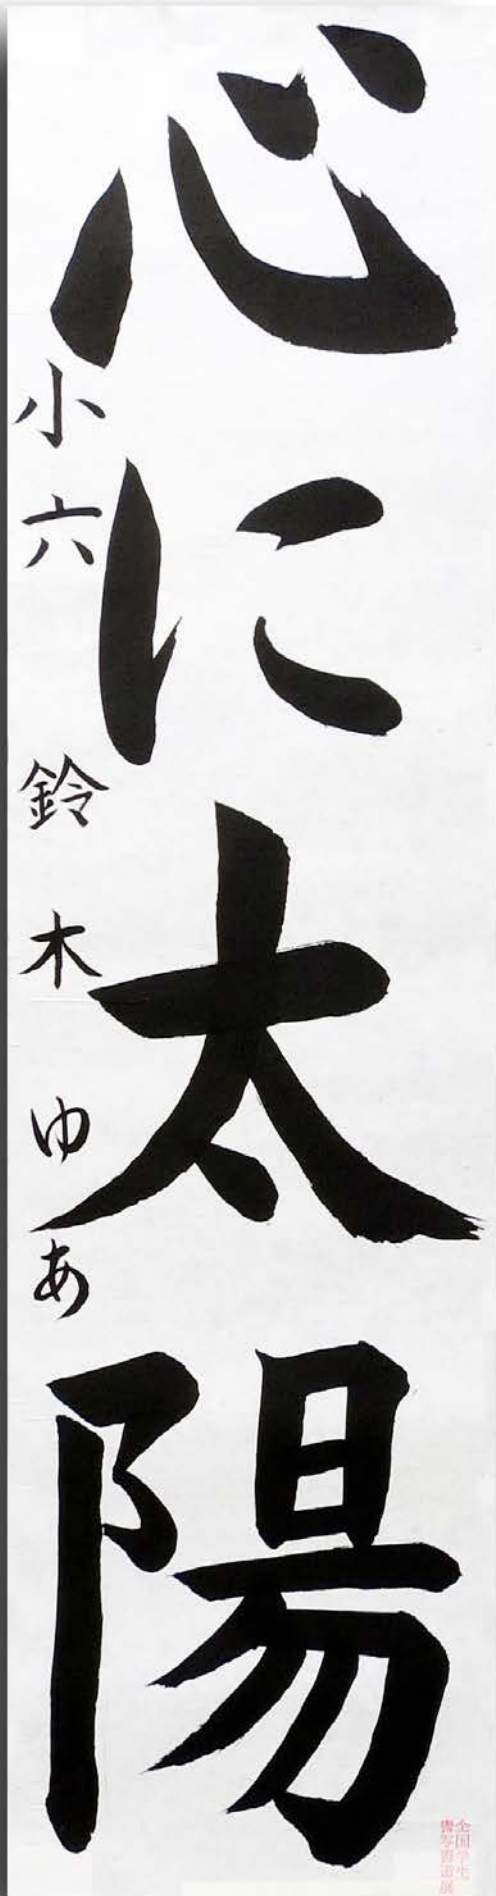 心に太陽
小六 鈴木ゆあ
全国学生
書写書道展